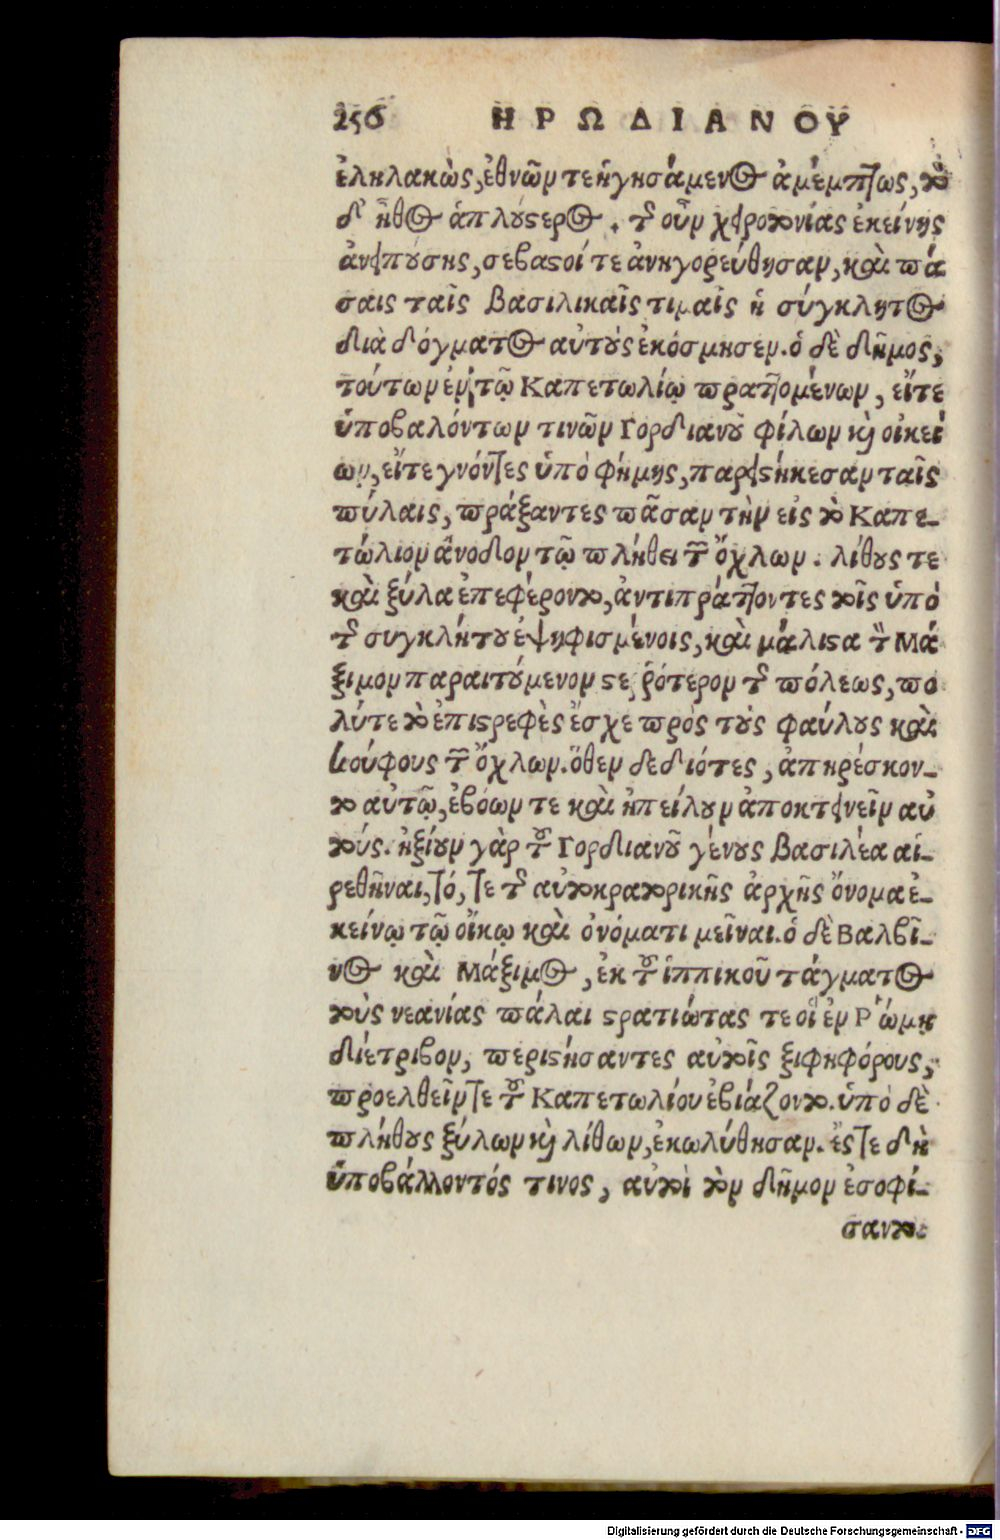 256 ΗΡΩΔΙΑΝΟΥ
ἐληλακὼς, ἐθνῶν τε ἡγησάμενος ἀμέμπτως, τὸ
δ' ἦθος ἁπλούστερος. τῆς οὖν χειροτονίας ἐκείνης
ἀνειπούσης, σεβαστοί τε ἀνηγορεύθησαν, καὶ πά
σαις ταῖς βασιλικαῖς τιμαῖς ἡ σύγκλητος
διὰ δόγματος αὐτοὺς ἐκόσμησεν. ὁ δὲ δῆμος,
τούτων ἐν τῷ Καπετωλίῳ πραττομένων, εἴτε
ὑποβαλόντων τινῶν Γορδιανοῦ φίλων καὶ οἰκεί
ων, εἴτε γνόντες ὑπὸ φήμης, παρειστήκεσαν ταῖς
πύλαις, πράξαντες πᾶσαν τὴν εἰς τὸ Καπε-
τώλιον ἄνοδον τῷ πλήθει τῶν ὄχλων. λίθους τε
καὶ ξύλα ἐπεφέροντο, ἀντιπράττοντες τοῖς ὑπὸ
τῆς συγκλήτου ἐψηφισμένοις, καὶ μάλιστα τὸν Μά
ξιμον παραιτούμενον στερρότερον τῆς πόλεως, πο
λύ τε τὸ ἐπιστρεφὲς ἔσχε πρὸς τοὺς φαύλους καὶ
κούφους τῶν ὄχλων. ὅθεν δεδιότες, ἀπηρέσκον-
το αὐτῷ, ἐβόων τε καὶ ἠπείλουν ἀποκτεινεῖν αὐ
τούς. ἠξίουν γὰρ τοῦ Γορδιανοῦ γένους βασιλέα αἱ-
ρεθῆναι, τό, τε τῆς αὐτοκρατορικῆς ἀρχῆς ὄνομα ἐ-
κείνῳ τῷ οἴκῳ καὶ ὀνόματι μεῖναι. ὁ δὲ Βαλβῖ-
νος καὶ Μάξιμος, ἐκ τοῦ ἱππικοῦ τάγματος
τοὺς νεανίας πάλαι στρατιώτας τε οἳ ἐν Ῥώμῃ
διέτριβον, περιστήσαντες αὑτοῖς ξιφηφόρους,
προελθεῖν τε τοῦ Καπετωλίου ἐβιάζοντο. ὑπὸ δὲ
πλήθους ξύλων καὶ λίθων, ἐκωλύθησαν. ἔστε δὴ
ὑποβάλλοντός τινος, αὐτοὶ τὸν δῆμον ἐσοφί-
σαντο.
Digitalisierung gefördert durch die Deutsche Forschungsgemeinschaft - DFG